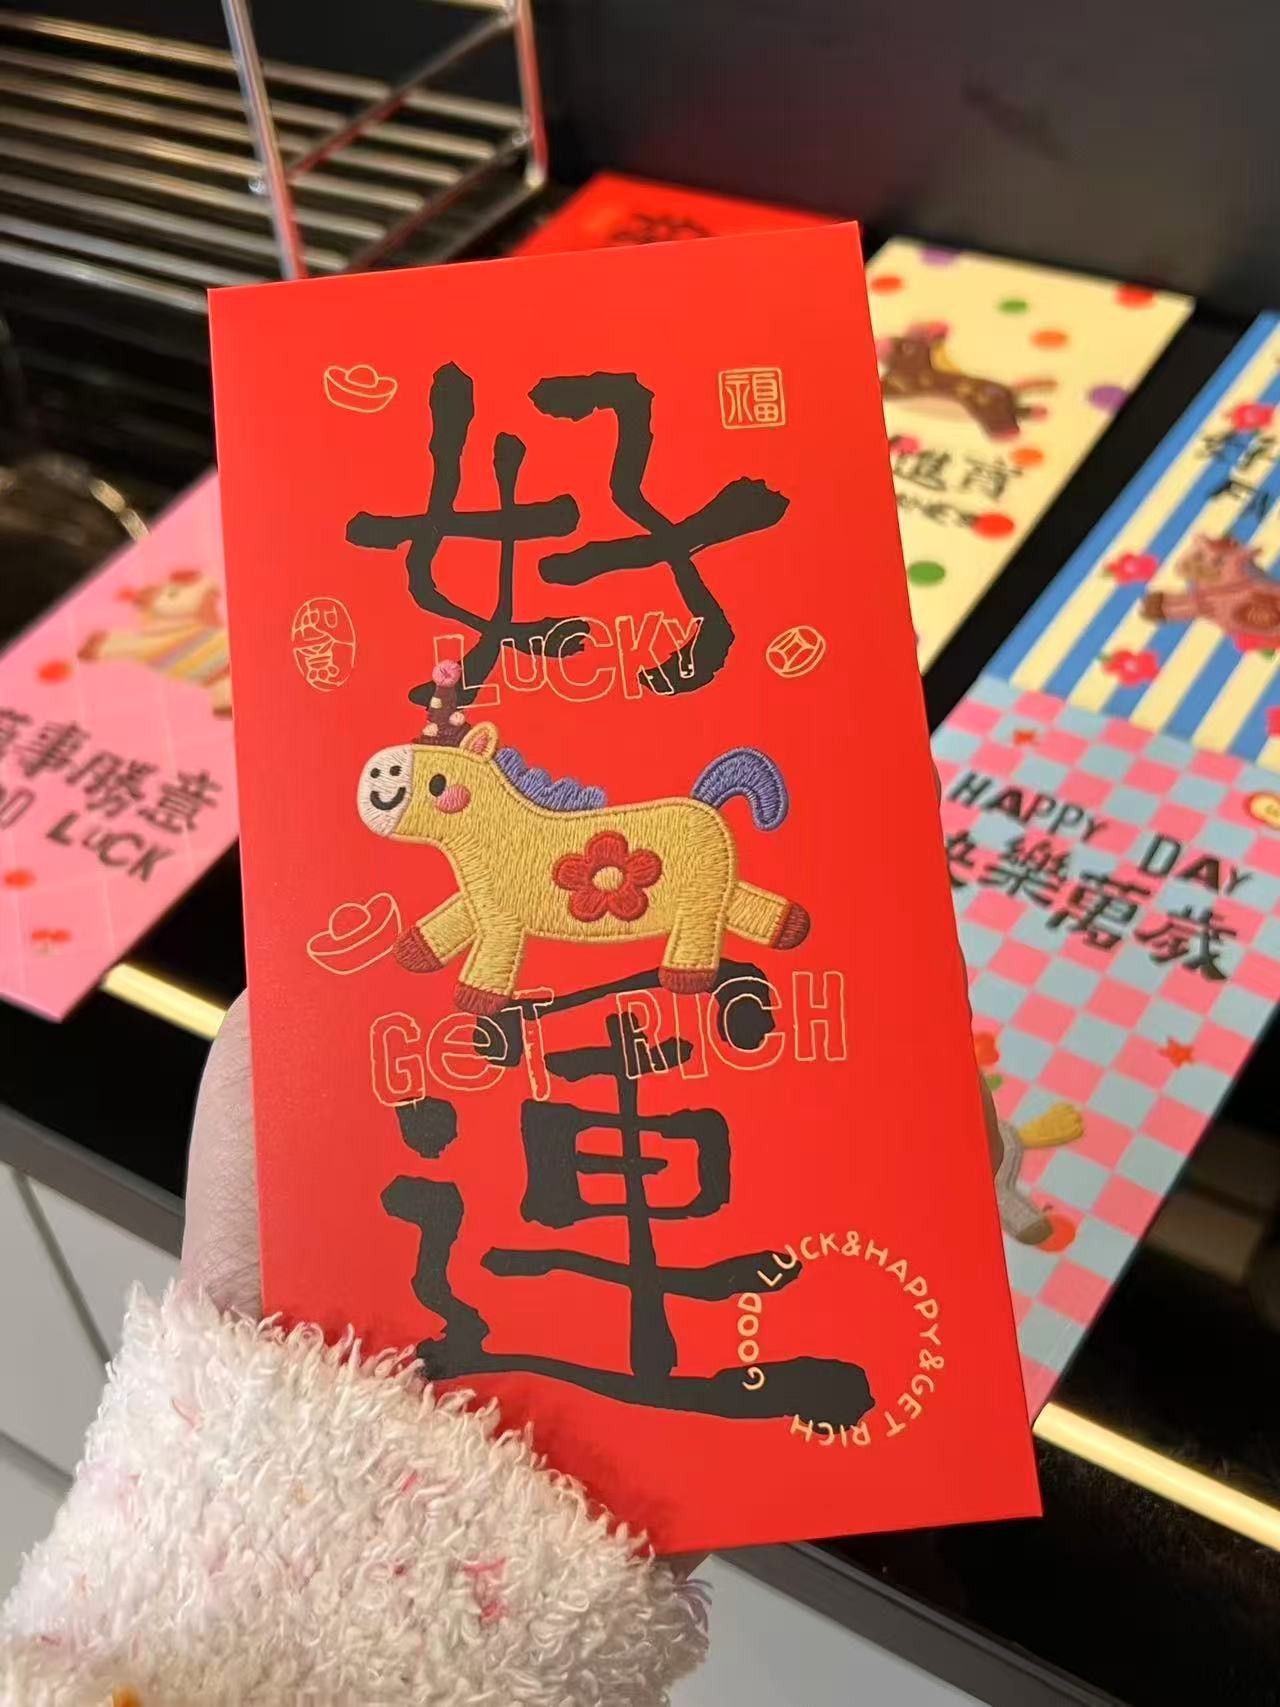 好
福
LUCKY
如意
GET RICH
運
GOOD LUCK&HAPPY&GET RICH
萬事勝意
LUCK
進宵
HAPPY DAY
快樂萬歲
好